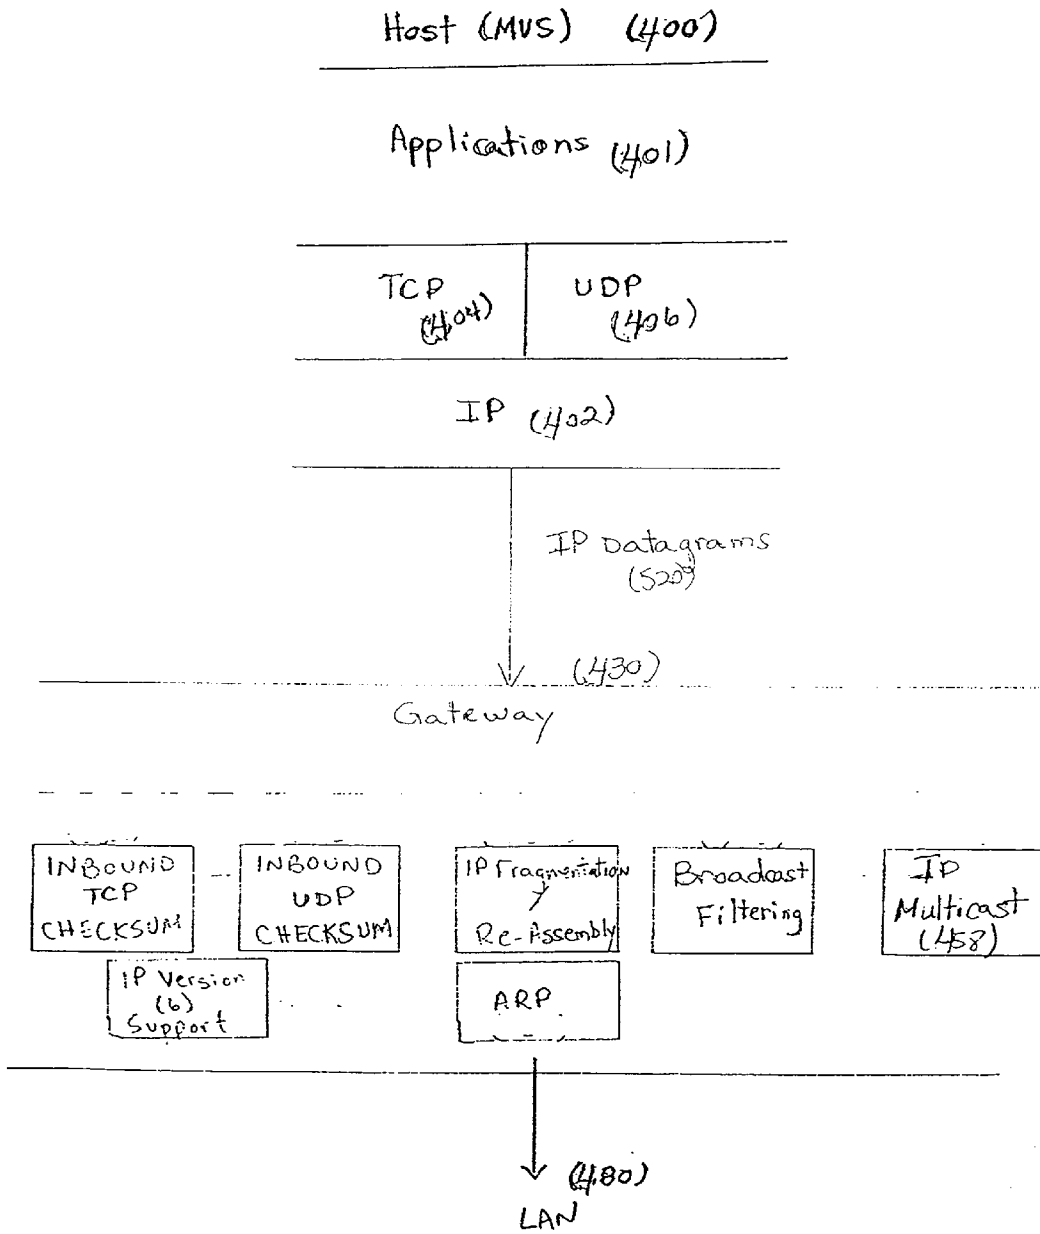 Host (MVS) (400)
Applications (401)
TCP UDP
(404) (406)
IP (402)
IP Datagrams
(520)
(430)
Gateway
INBOUND
TCP
CHECKSUM
INBOUND
UDP
CHECKSUM
IP Fragmentation
/
Re-Assembly
Broadcast
Filtering
IP
Multicast
(458)
IP Version
(6)
Support
ARP
(480)
LAN